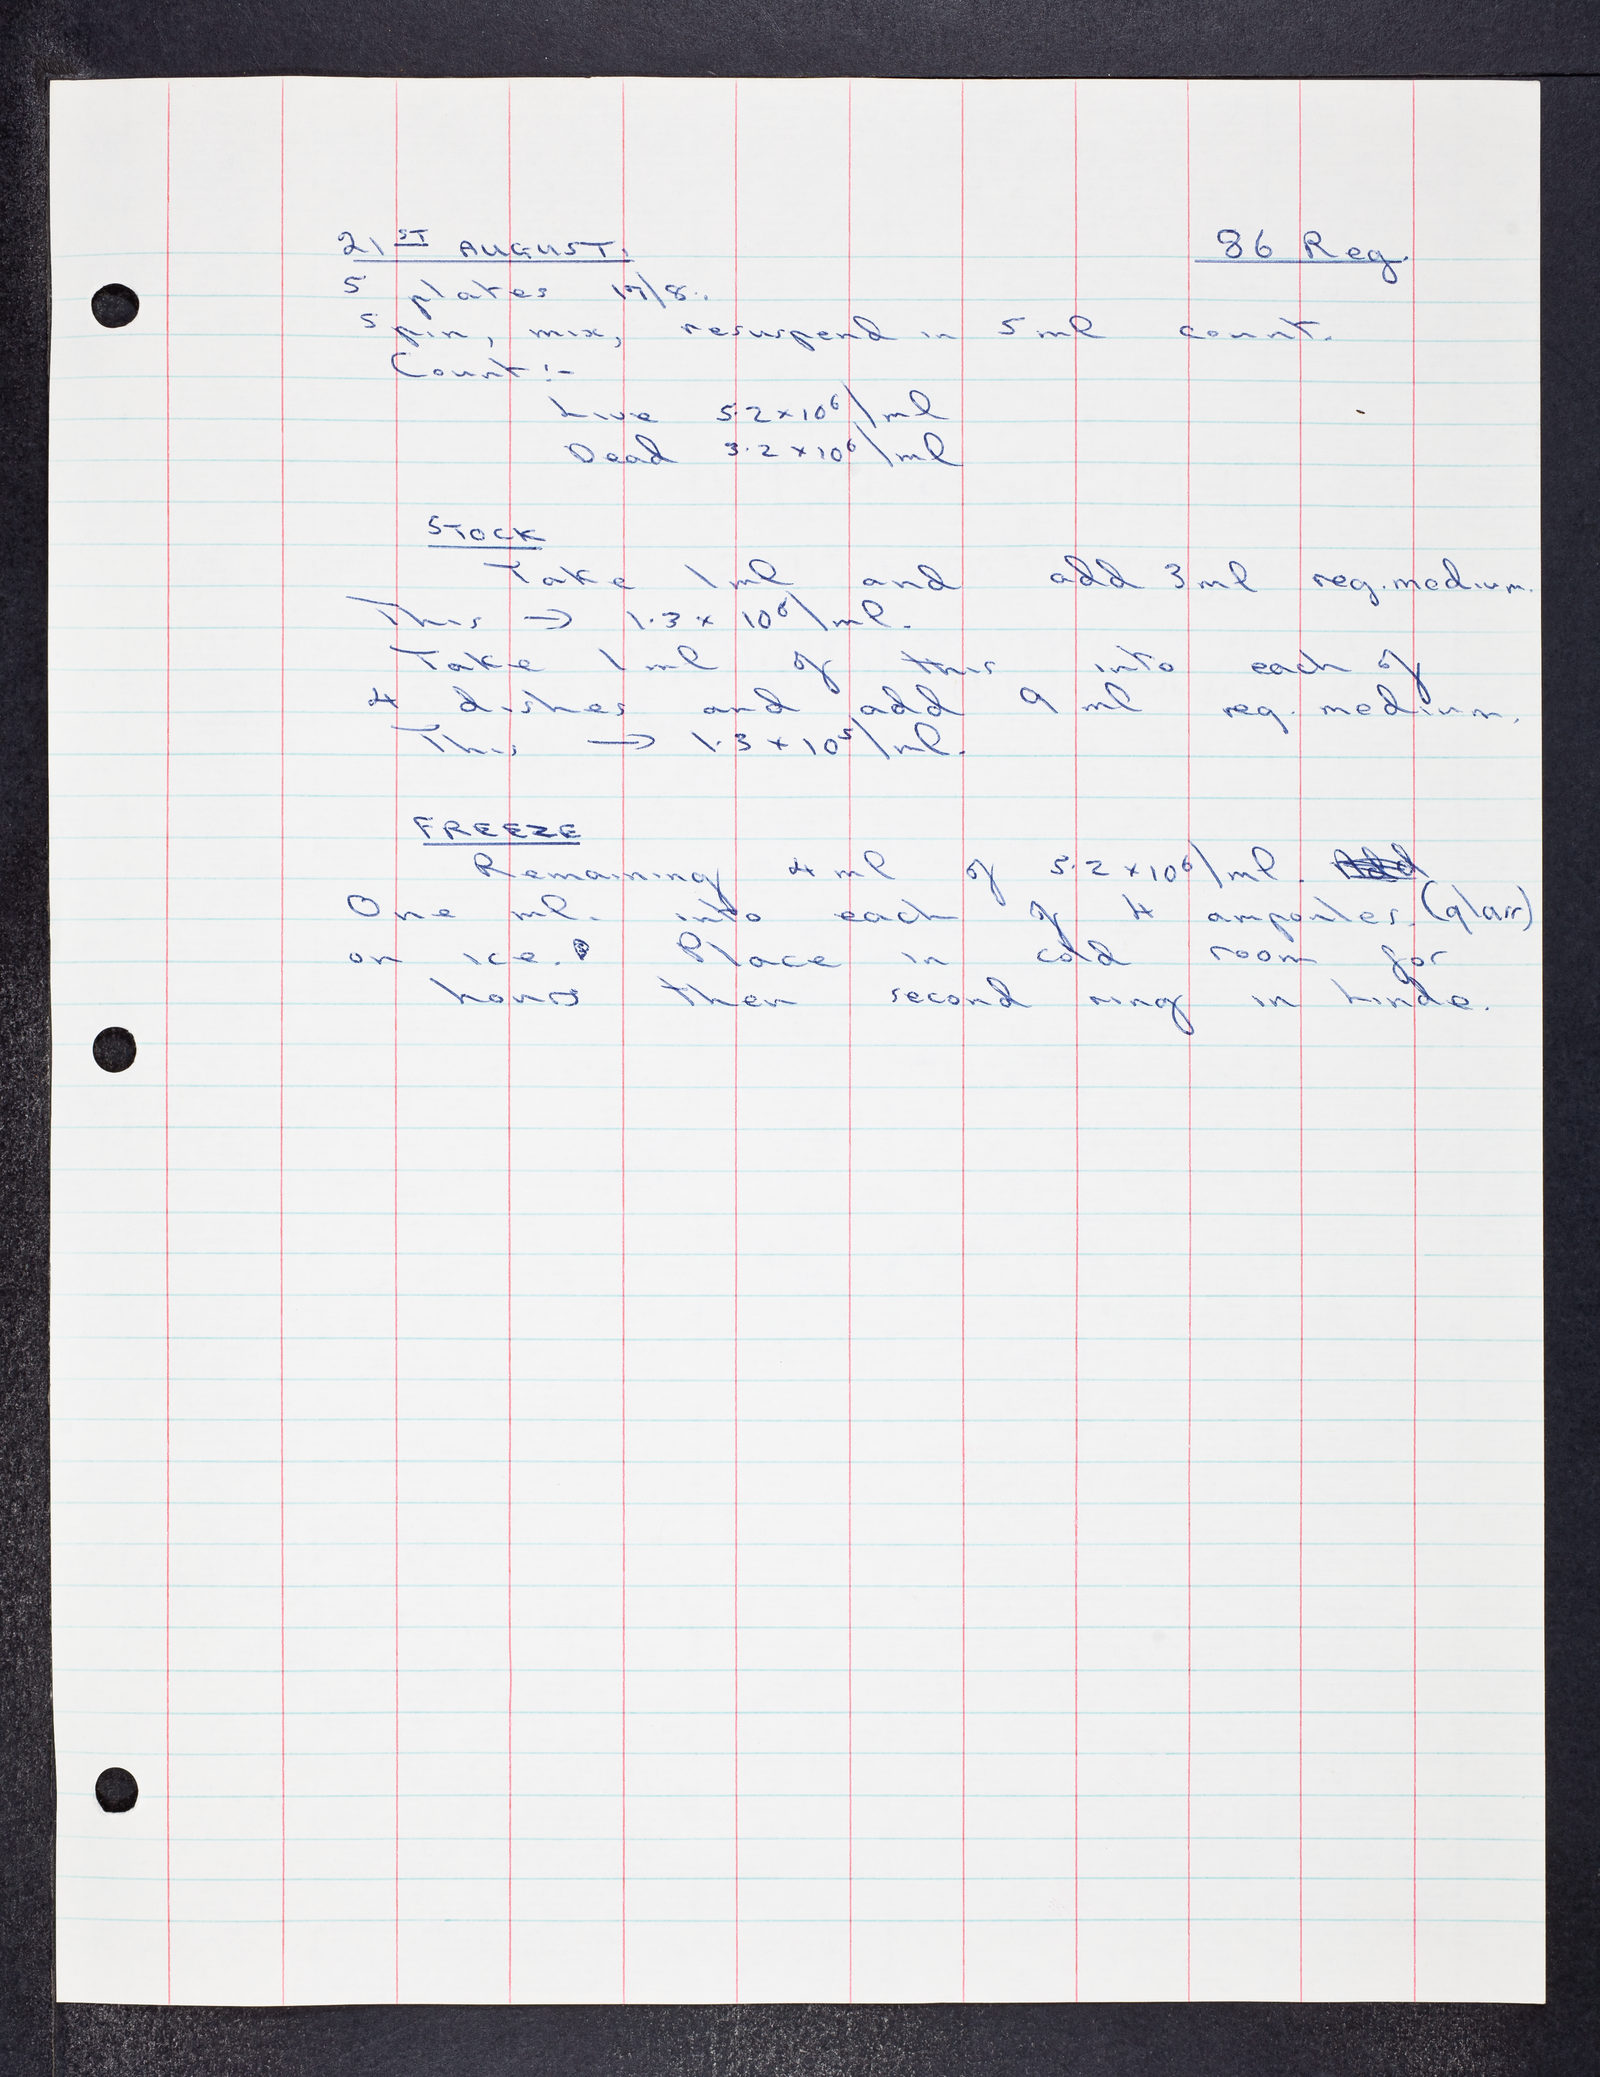 21ST AUGUST. 86 Reg.
5 plates 17/8.
Spin, mix, resuspend in 5 ml count.
Count:-
Live 5.2 × 10⁶/ml
Dead 3.2 × 10⁶/ml
STOCK
Take 1 ml and add 3 ml reg. medium.
This → 1.3 × 10⁶/ml.
Take 1 ml of this into each of
4 dishes and add 9 ml reg. medium.
This → 1.3 × 10⁵/ml.
FREEZE
Remaining 4 ml of 5.2 × 10⁶/ml.
One ml. into each of 4 ampoules. (glass)
on ice. Place in cold room for
hours then second ring in Linde.